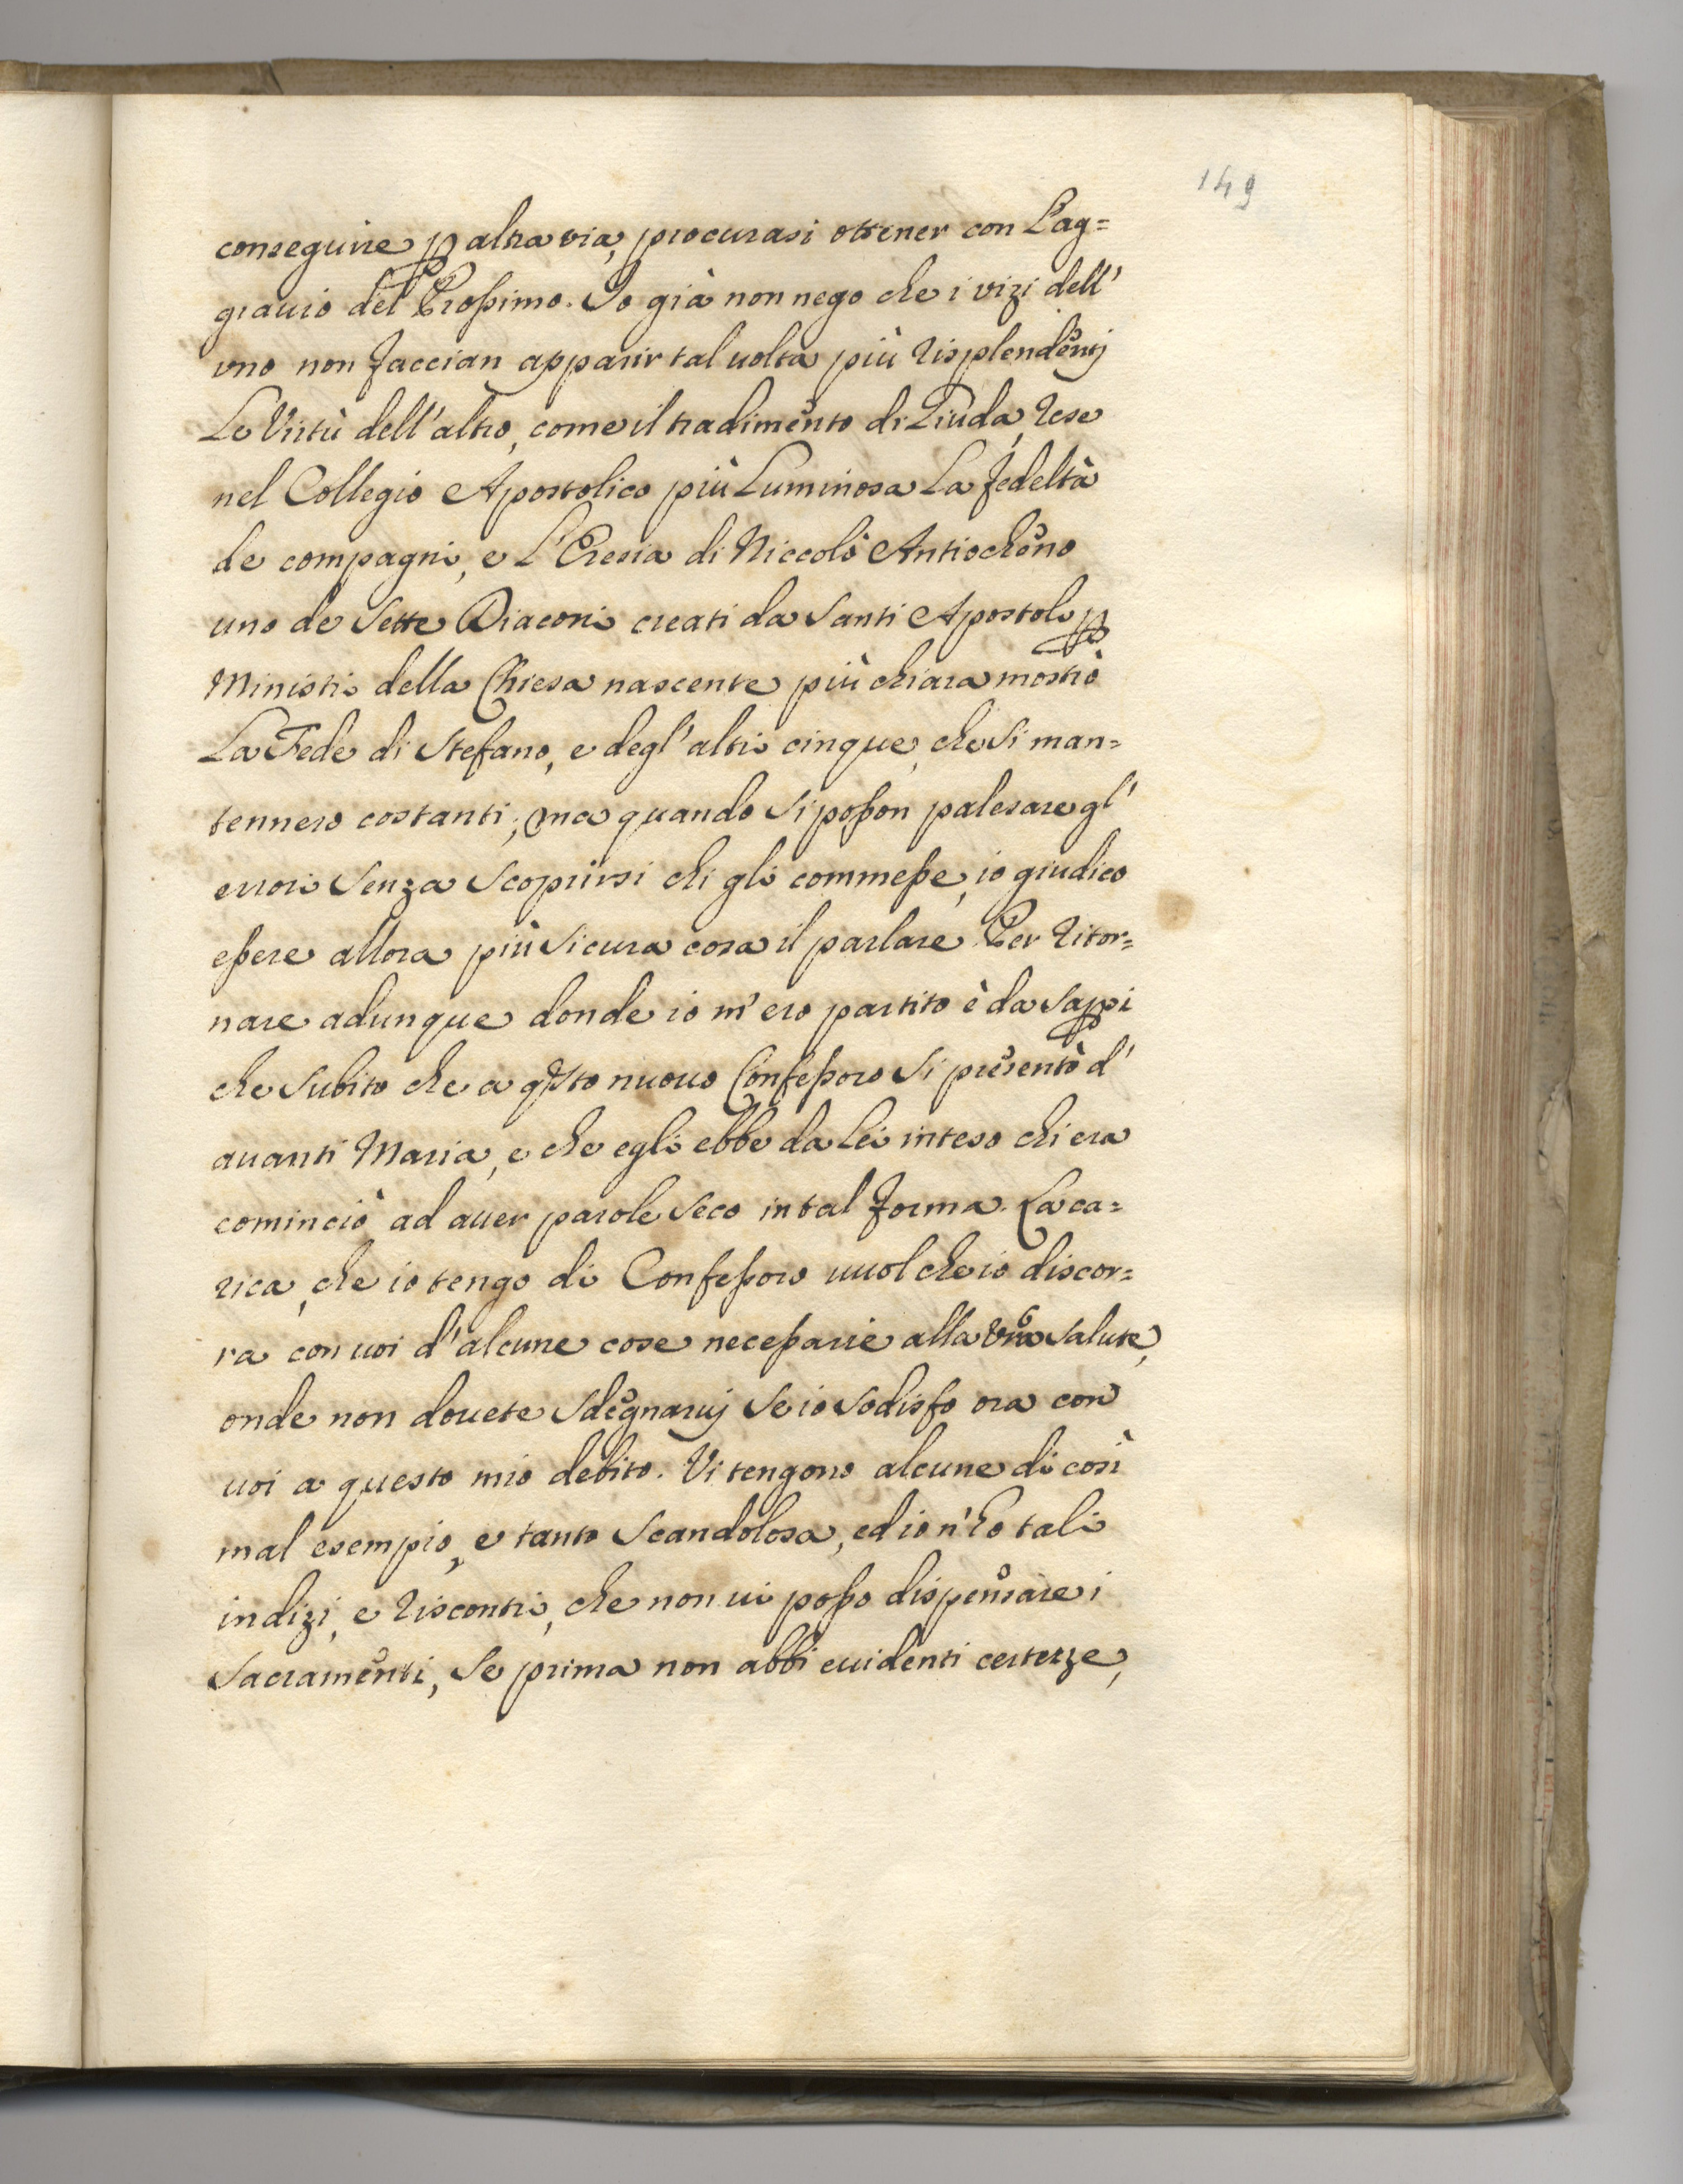 149
conseguire ꝑ altra via, procurasi ottener con L'ag=
grauio del Prossimo. Io già non nego che i vizi dell'
vno non faccian apparir tal uolta più risplendentj
Le Virtù dell'altro, come il tradimento di Giuda, rese
nel Collegio Apostolico più Luminosa La fedeltà
de compagni, e L'Eresia di Niccolò Antiocheno
uno de Sette Diaconi creati da Santi Apostoli ꝑ
Ministri della Chiesa nascente più chiara mostrò
La Fede di Stefano, e degl'altri cinque, che Si man=
tennero costanti; ma quando Si posson palesare gl'
errori Senza Scoprirsi chi gli commesse, io giudico
essere allora più Sicura cosa il parlare. Per ritor=
nare adunque donde io m'ero partito è da Saꝑsi
che Subito che a qsto nuouo Confessoro Si presentò d'
auanti Maria, e che egli ebbe da Lei inteso chi era
cominciò ad auer parole Seco in tal forma. La ca=
rica, che io tengo di Confessoro uuol che io discor=
ra con uoi d'alcune cose necessarie alla vra Salute,
onde non douete Sdegnaruj Se io Sodisfo ora con
uoi a questo mio debito. Vi tengono alcune di così
mal esempio, e tanto Scandolosa, ed io n'ho tali
indizi, e riscontri, che non ui posso dispensare i
Sacramenti, Se prima non abbi euidenti certezze,